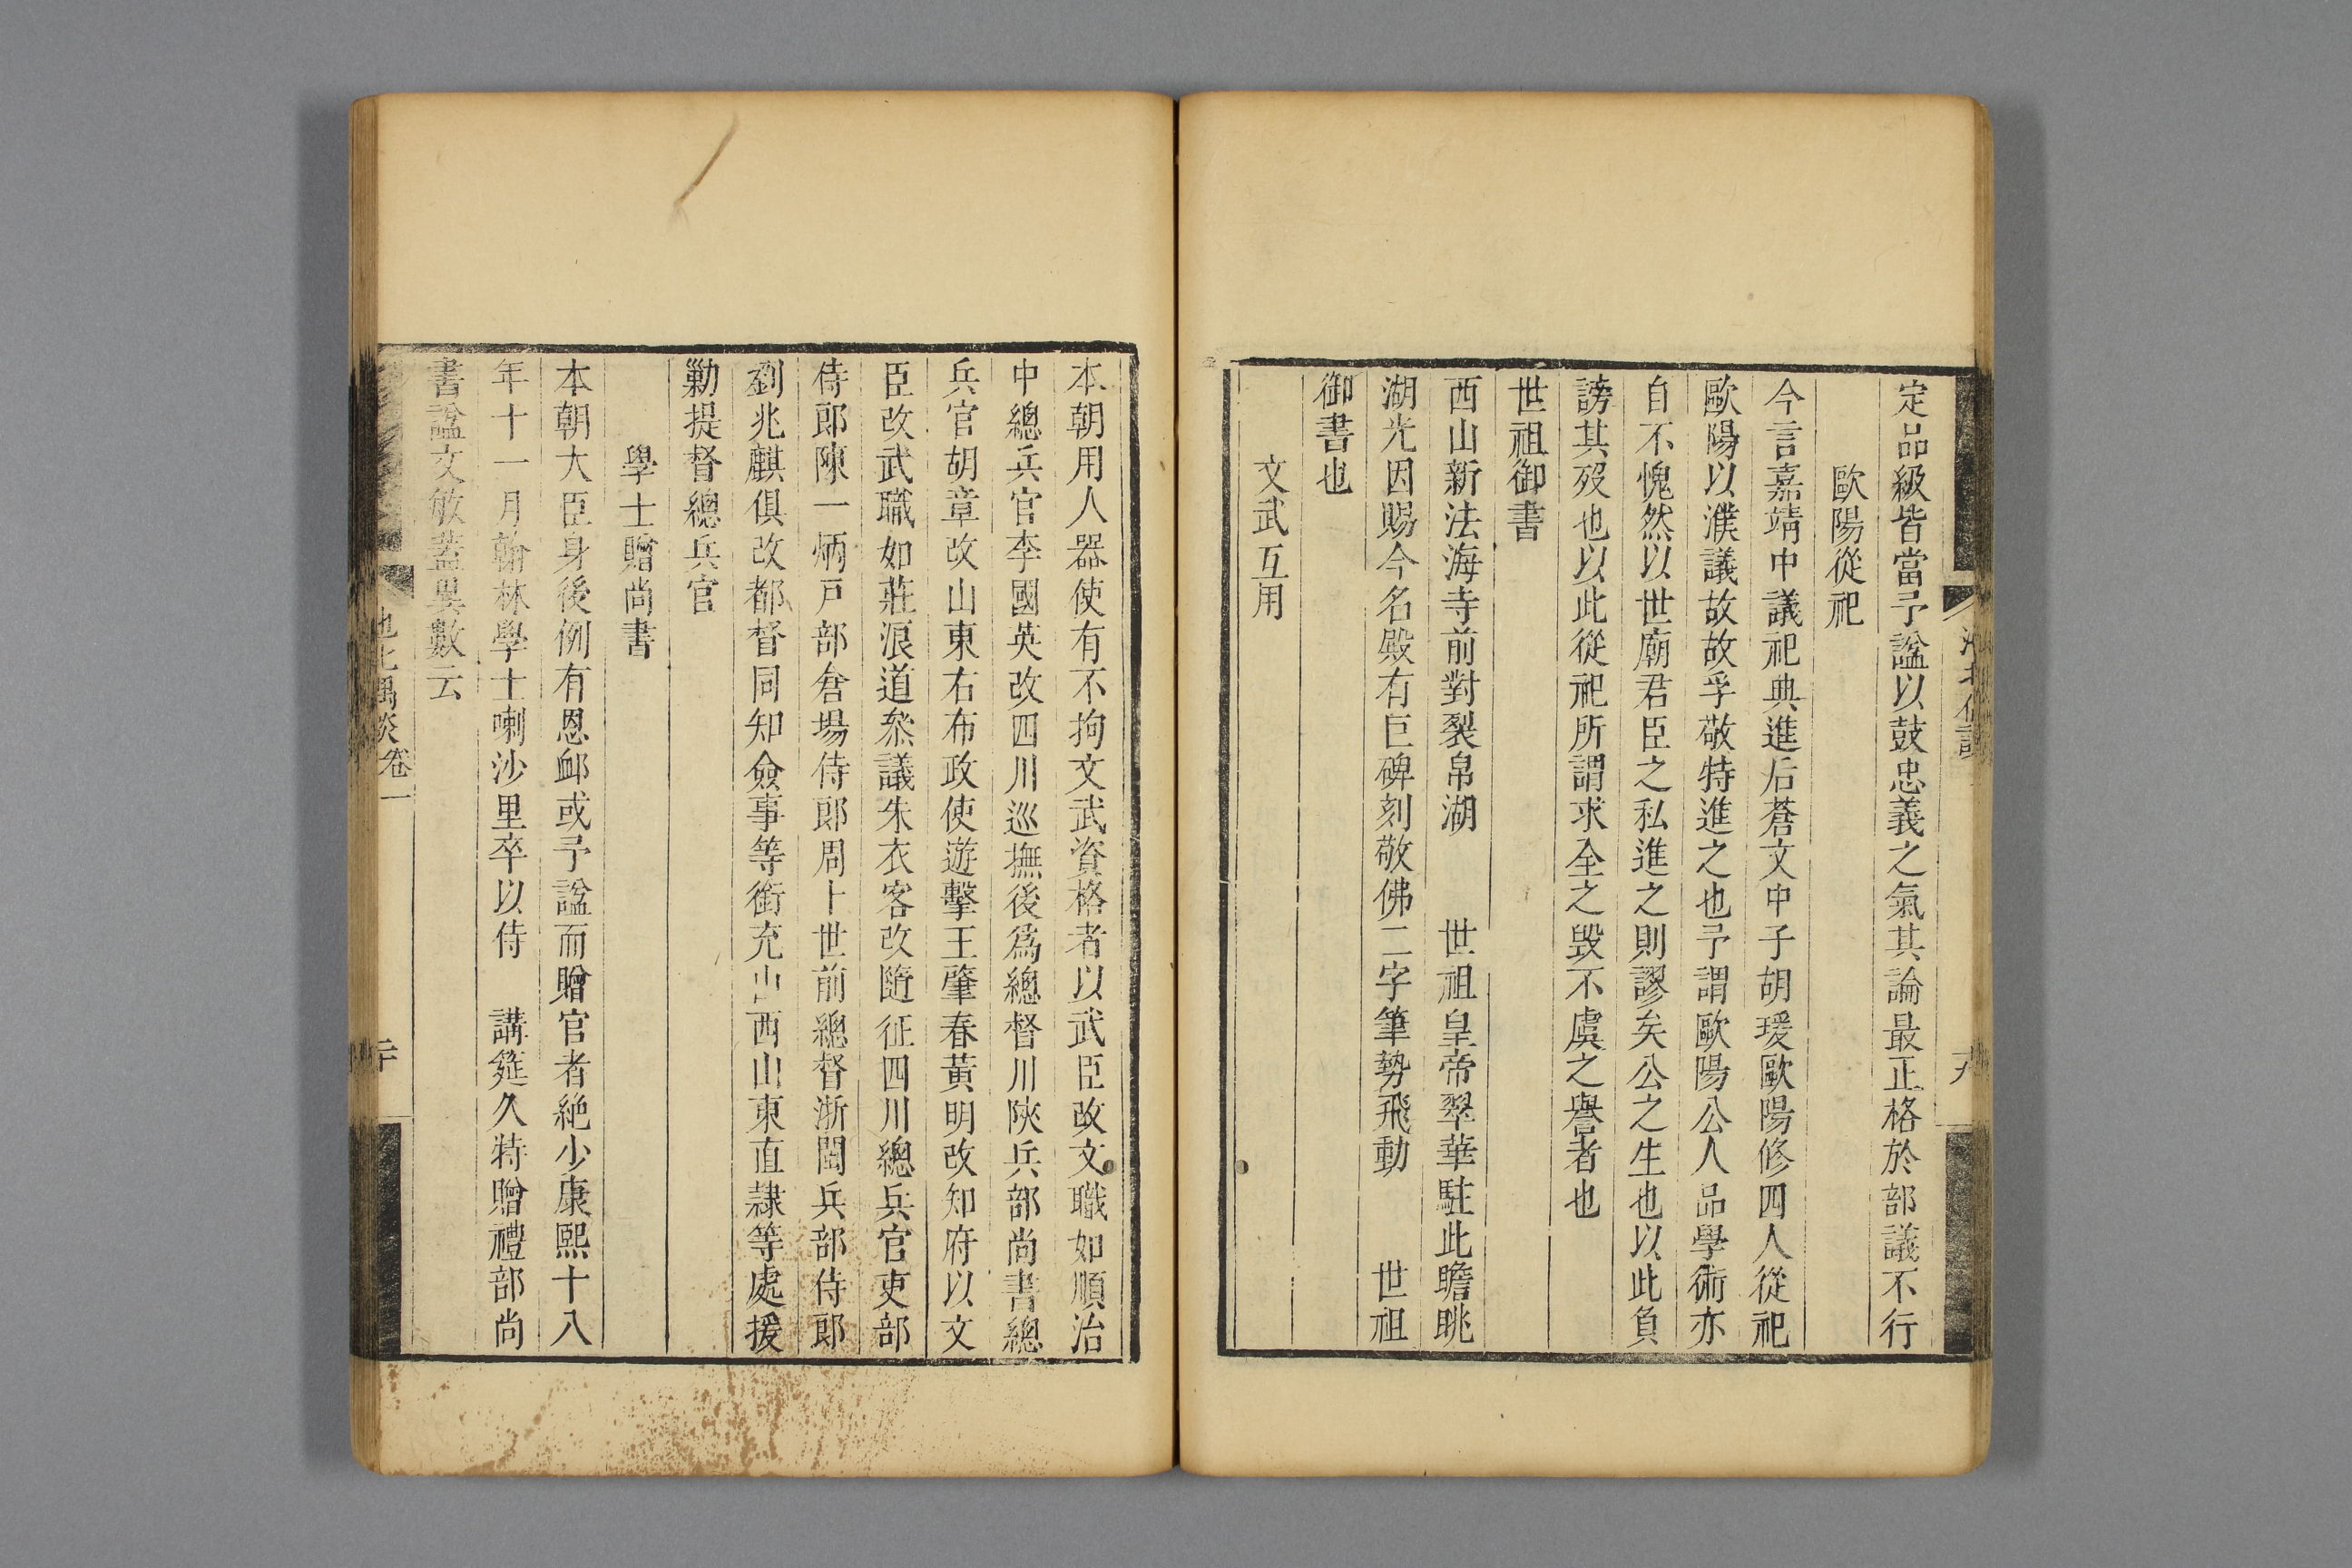 定品級皆當予諡以鼓忠義之氣其論最正格於部議不行
歐陽從祀
今言嘉靖中議祀典進后蒼文中子胡瑗歐陽修四人從祀
歐陽以濮議故故孚敬特進之也予謂歐陽公人品學術亦
自不愧然以世廟君臣之私進之則謬矣公之生也以此負
謗其歿也以此從祀所謂求全之毀不虞之譽者也
世祖御書
西山新法海寺前對裂帛湖 世祖皇帝翠華駐此瞻眺
湖光因賜今名殿右巨碑刻敬佛二字筆勢飛動 世祖
御書也
文武互用
本朝用人器使有不拘文武資格者以武臣改文職如順治
中總兵官李國英改四川巡撫後爲總督川陝兵部尚書總
兵官胡章改山東右布政使遊擊王肇春黃明改知府以文
臣改武職如莊浪道叅議朱衣客改隨征四川總兵官吏部
侍郎陳一炳戸部倉場侍郎周卜世前總督浙閩兵部侍郎
劉兆麒俱改都督同知僉事等銜充山西山東直隷等處援
勦提督總兵官
學士贈尚書
本朝大臣身後例有恩䘏或予諡而贈官者絶少康熙十八
年十一月翰林學士喇沙里卒以侍 講筵久特贈禮部尚
書諡文敏蓋異數云
卷一